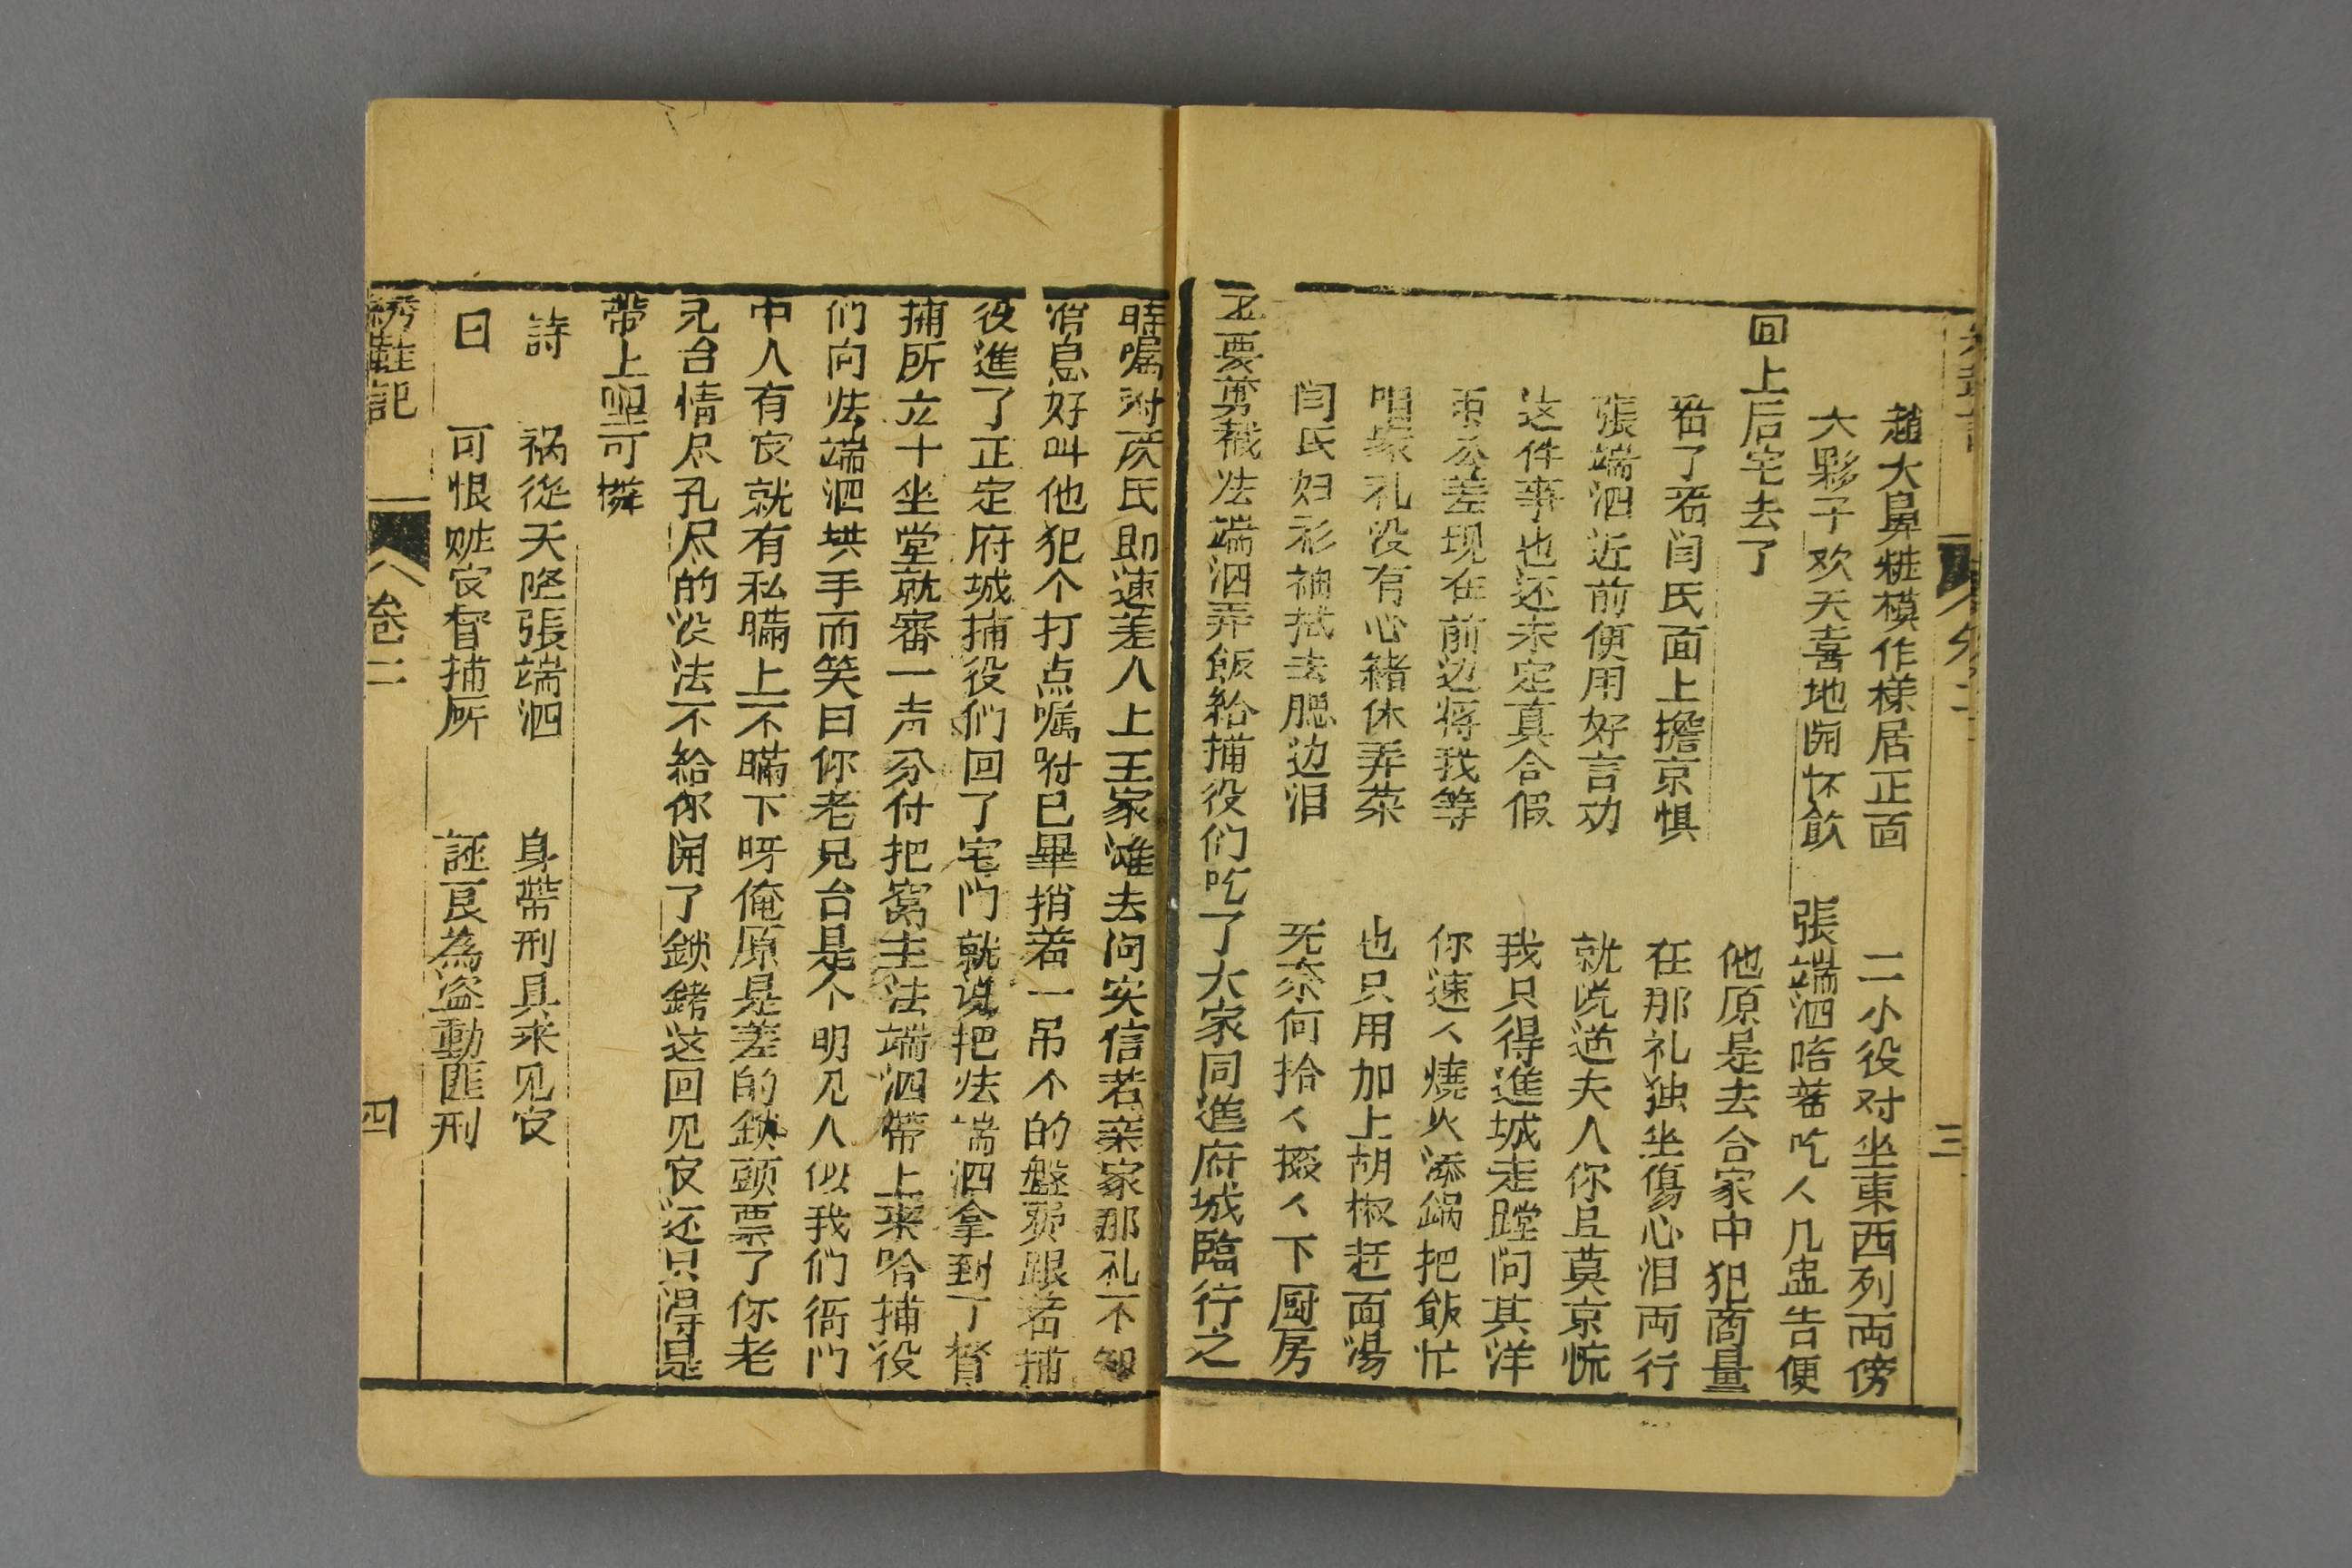 趙大鼻粧模作様居正面 二小役对坐東西列両傍
大夥子欢天喜地開怀飲 張端泗陪着吃人几盅告便
回上后宅去了
看了看闫氏面上擔京惧 他原是去合家中犯商量
張端泗近前便用好言劝 在那礼独坐傷心泪両行
这件事也还未定真合假 就说道夫人你且莫京慌
公差现在前边将我等 我只得進城走蹚问其洋
咱家礼没有心緒休弄菜 你速人燒火添鍋把飯忙
闫氏妇衫袖拭去腮边泪 也只用加上胡椒赶面湯
无奈何拾人掇人下厨房
不要剪截法端泗弄飯給捕役们吃了大家同進府城臨行之
時嘱咐闫氏即速差人上王家滩去问实信若亲家那礼不知
消息好叫他犯个打点嘱咐已畢捎着一吊个的盤费跟着捕
役進了正定府城捕役们回了宅门就说把法端泗拿到了督
捕所立卞坐堂就審一声分付把窩主法端泗帶上来哈捕役
们向法端泗拱手而笑曰你老兄台是个明见人似我们衙门
中人有官就有私瞞上不瞞下呀俺原是差的鎖頭票了你老
兄台情尽孔尽的没法不給你開了鎖銬这回见官还只得是
帶上哩可憐
詩 祸從天降張端泗 身帶刑具来见官
曰 可恨赃官督捕所 誣良為盗動匪刑
綉鞋記 卷二 四
三